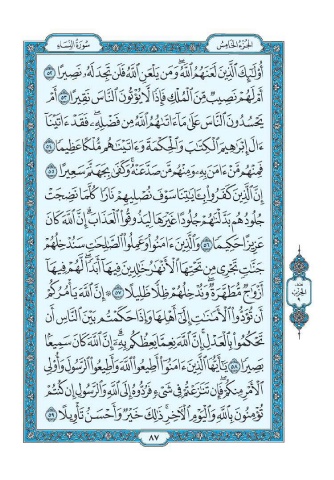 الجزء الخامس
سورة النساء
أُوْلَٰٓئِكَ ٱلَّذِينَ لَعَنَهُمُ ٱللَّهُۖ وَمَن يَلْعَنِ ٱللَّهُ فَلَن تَجِدَ لَهُۥ نَصِيرًا ٥٢
أَمْ لَهُمْ نَصِيبٌ مِّنَ ٱلْمُلْكِ فَإِذًا لَّا يُؤْتُونَ ٱلنَّاسَ نَقِيرًا ٥٣ أَمْ
يَحْسُدُونَ ٱلنَّاسَ عَلَىٰ مَآ ءَاتَىٰهُمُ ٱللَّهُ مِن فَضْلِهِۦۖ فَقَدْ ءَاتَيْنَآ
ءَالَ إِبْرَٰهِيمَ ٱلْكِتَٰبَ وَٱلْحِكْمَةَ وَءَاتَيْنَٰهُم مُّلْكًا عَظِيمًا ٥٤
فَمِنْهُم مَّنْ ءَامَنَ بِهِۦ وَمِنْهُم مَّن صَدَّ عَنْهُۚ وَكَفَىٰ بِجَهَنَّمَ سَعِيرًا ٥٥
إِنَّ ٱلَّذِينَ كَفَرُواْ بِـَٔايَٰتِنَا سَوْفَ نُصْلِيهِمْ نَارًا كُلَّمَا نَضِجَتْ
جُلُودُهُم بَدَّلْنَٰهُمْ جُلُودًا غَيْرَهَا لِيَذُوقُواْ ٱلْعَذَابَۗ إِنَّ ٱللَّهَ كَانَ
عَزِيزًا حَكِيمًا ٥٦ وَٱلَّذِينَ ءَامَنُواْ وَعَمِلُواْ ٱلصَّٰلِحَٰتِ سَنُدْخِلُهُمْ
جَنَّٰتٍ تَجْرِى مِن تَحْتِهَا ٱلْأَنْهَٰرُ خَٰلِدِينَ فِيهَآ أَبَدًاۖ لَّهُمْ فِيهَآ
أَزْوَٰجٌ مُّطَهَّرَةٌۖ وَنُدْخِلُهُمْ ظِلًّا ظَلِيلًا ٥٧ ۞ إِنَّ ٱللَّهَ يَأْمُرُكُمْ
أَن تُؤَدُّواْ ٱلْأَمَٰنَٰتِ إِلَىٰٓ أَهْلِهَا وَإِذَا حَكَمْتُم بَيْنَ ٱلنَّاسِ أَن
تَحْكُمُواْ بِٱلْعَدْلِۚ إِنَّ ٱللَّهَ نِعِمَّا يَعِظُكُم بِهِۦٓۗ إِنَّ ٱللَّهَ كَانَ سَمِيعًۢا
بَصِيرًا ٥٨ يَٰٓأَيُّهَا ٱلَّذِينَ ءَامَنُوٓاْ أَطِيعُواْ ٱللَّهَ وَأَطِيعُواْ ٱلرَّسُولَ وَأُوْلِى
ٱلْأَمْرِ مِنكُمْۖ فَإِن تَنَٰزَعْتُمْ فِى شَىْءٍ فَرُدُّوهُ إِلَى ٱللَّهِ وَٱلرَّسُولِ إِن كُنتُمْ
تُؤْمِنُونَ بِٱللَّهِ وَٱلْيَوْمِ ٱلْأَخِرِۚ ذَٰلِكَ خَيْرٌ وَأَحْسَنُ تَأْوِيلًا ٥٩
٨٧